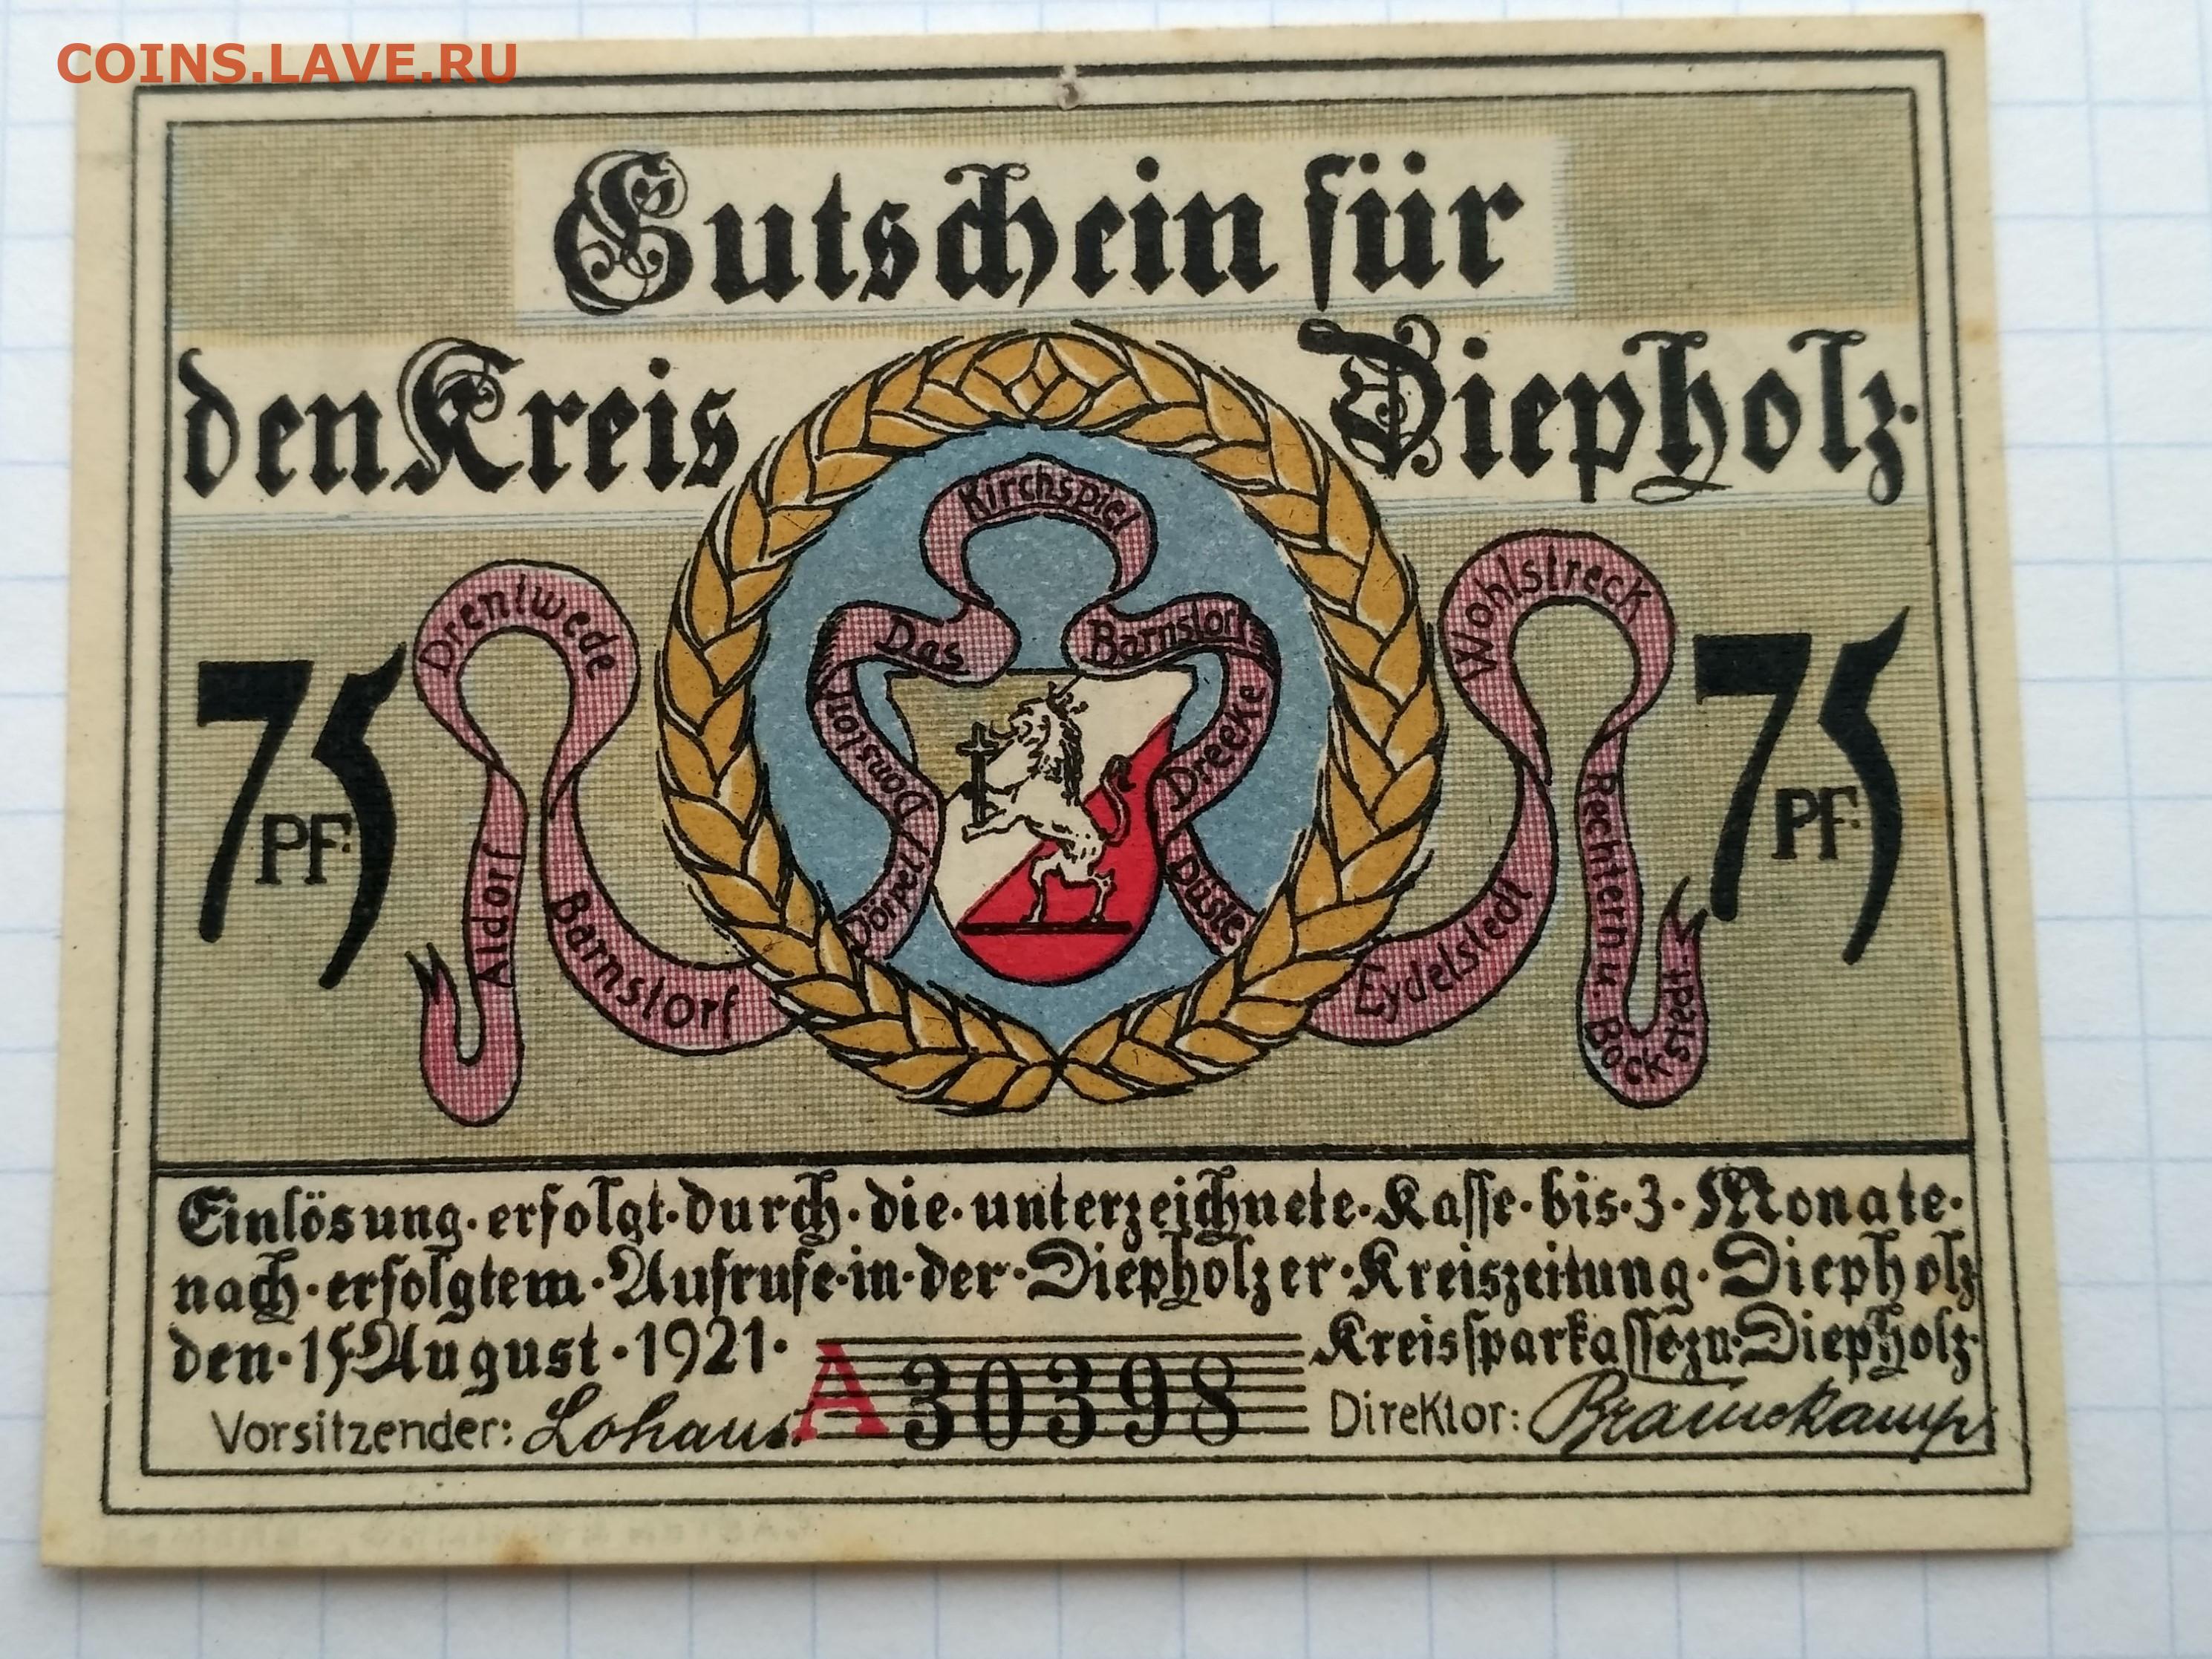 COINS.LAVE.RU
Gutschein für
den Kreis Diepholz·
Das
Kirchspiel
Barnstorf
Drentwede
Aldorf
Barnstorf
Donstorf
Dörpel
Dreeke
Düste
Wohlstreck
Eydelstedt
Rechtern u. Bockstedt
75 PF.
75 PF.
Einlösung·erfolgt·durch·die·unterzeichnete·Kasse·bis·3·Monate·
nach·erfolgtem·Aufrufe·in·der·Diepholzer·Kreiszeitung·Diepholz
den·15·August·1921·
Kreissparkasse·zu·Diepholz·
Vorsitzender: Lohaus.
A 30398
Direktor: